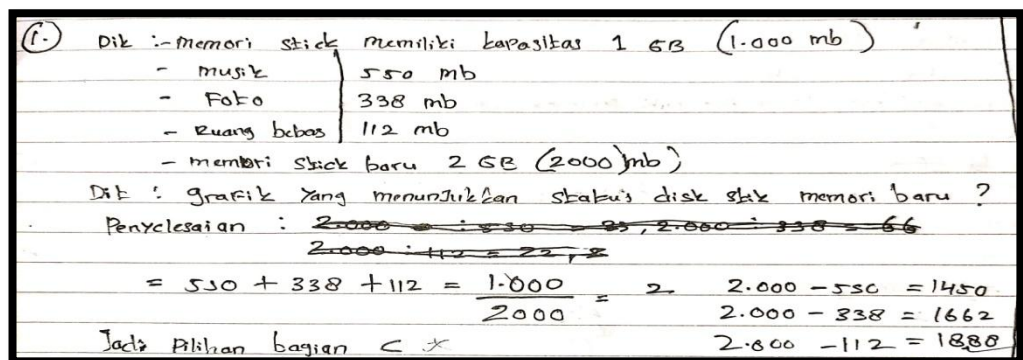 1. Dik :- memori stick memiliki kapasitas 1 GB (1.000 mb)
- musik 550 mb
- Foto 338 mb
- Ruang bebas 112 mb
- memori stick baru 2 GB (2000) mb)
Dit : grafik yang menunjukkan status disk stik memori baru ?
Penyelesaian : 2.000 : 550 = 2.000 : 338 = 66
2.000 : 112 = 22,2
= 550 + 338 + 112 = 1.000 / 2000 = 2. 2.000 - 550 = 1450
2.000 - 338 = 1662
Jadi Pilihan bagian C * 2.000 - 112 = 1888